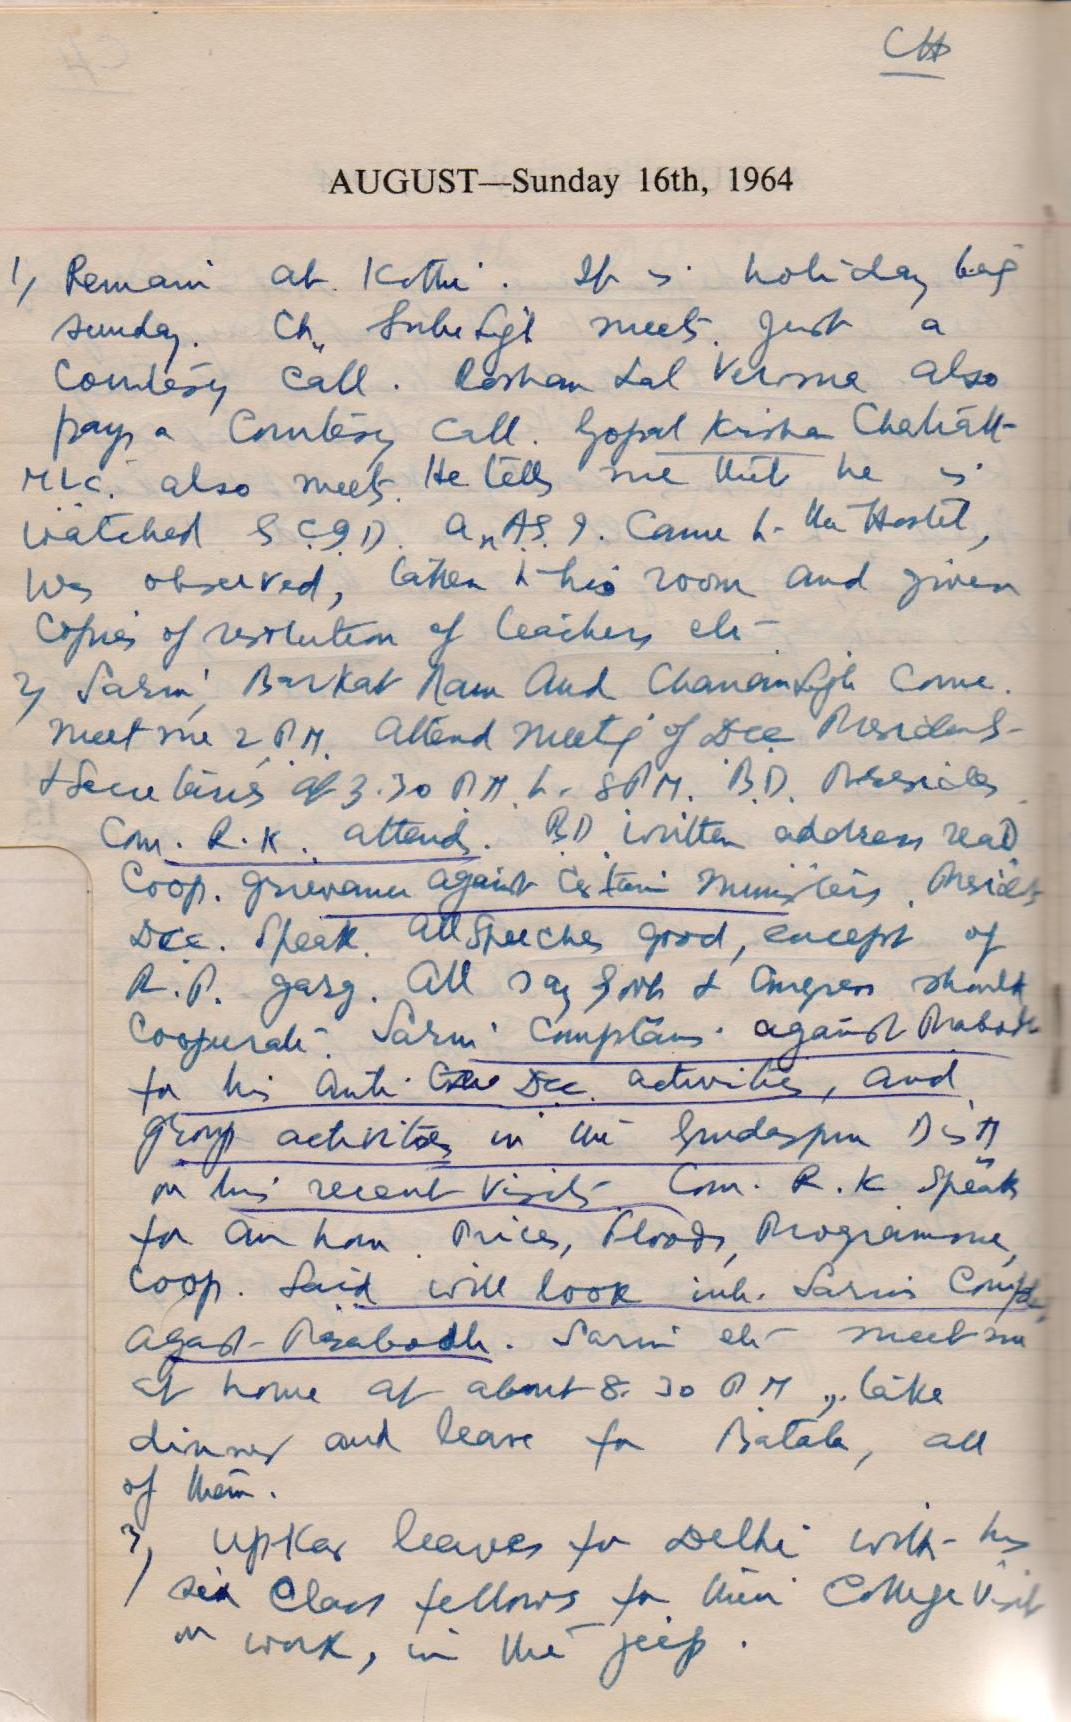 CH
AUGUST—Sunday 16th, 1964
1, Remain at Kothi. It is holiday being
Sunday. Ch. meets. Just a
Courtesy call. Roshan Lal Verma also
pays a Courtesy call. Gopal Krishan
MLC. also meets. He tells me that he is
watched C.I.D. An A.S.I. Came to the Hostel,
was observed, taken to his room and given
Copies of resolution of teachers etc
2, Sarin, Barkat Ram and Chanan Singh come.
meet me 2 P.M. Attend meeting of Dcc Presidents
& Secretaries at 3.30 P.M. to 8 P.M. B.D. Presides
Com. R.K. attends. BD written address read
Coop. grievance against certain ministers. Presidents
Dcc. Speak. All Speeches good, except of
R.P. Garg. All say Govt & Congress should
Cooperate. Sarin complains against Prabodh
for his anti Dcc activities, and
group activities in the Gurdaspur Distt
on his recent visits Com. R.K Speaks
for an hour. Prices, Floods, Programme,
Coop. Said will look into Sarin's
against Prabodh. Sarin etc meet me
at home at about 8.30 PM, take
dinner and leave for Batala, all
of them.
3, Upkar leaves for Delhi with his
six Class fellows for their College visit
or work, in the jeep.